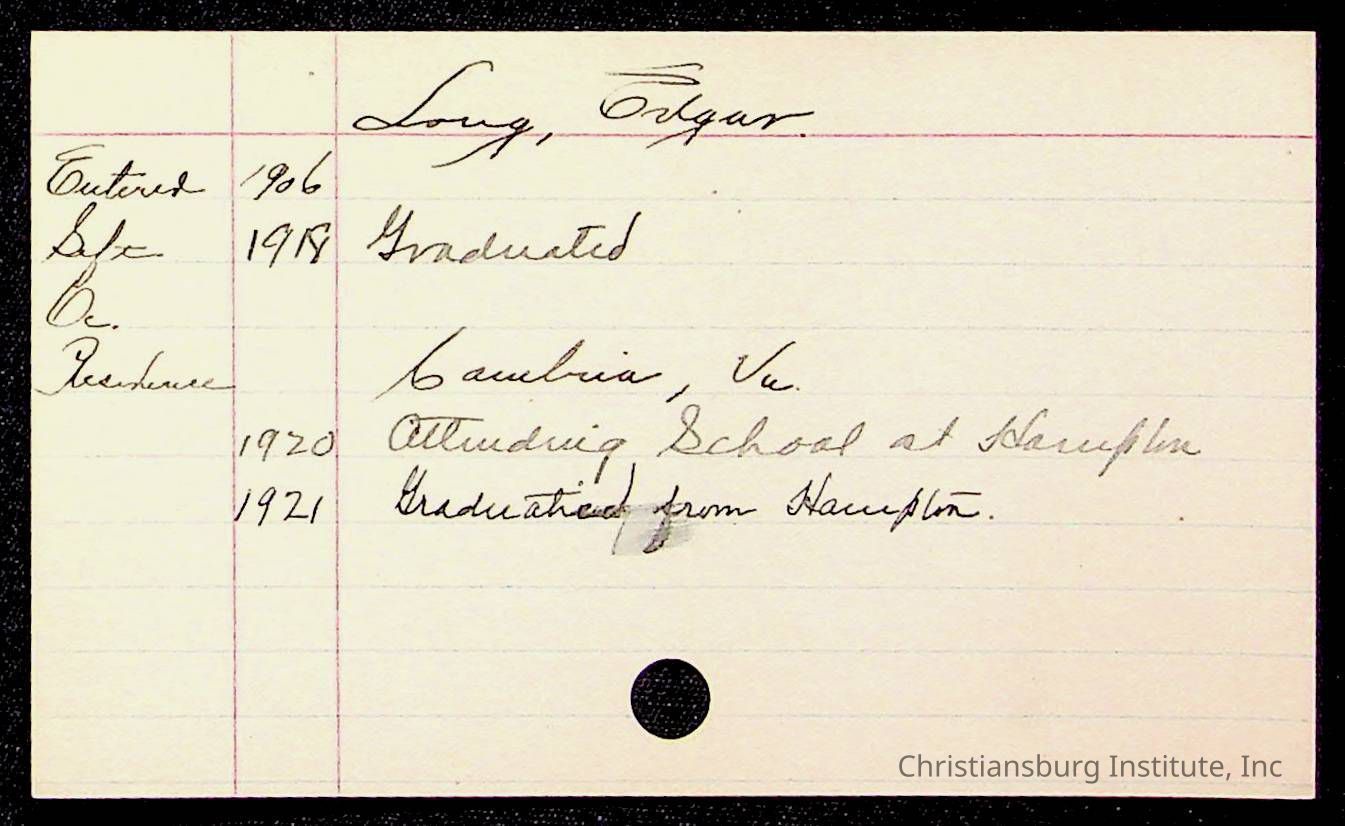 Long, Edgar.
Entered 1906
Left 1918 Graduated
Oc.
Residence Cambria, Va.
1920 Attending School at Hampton
1921 Graduated from Hampton.
Christiansburg Institute, Inc